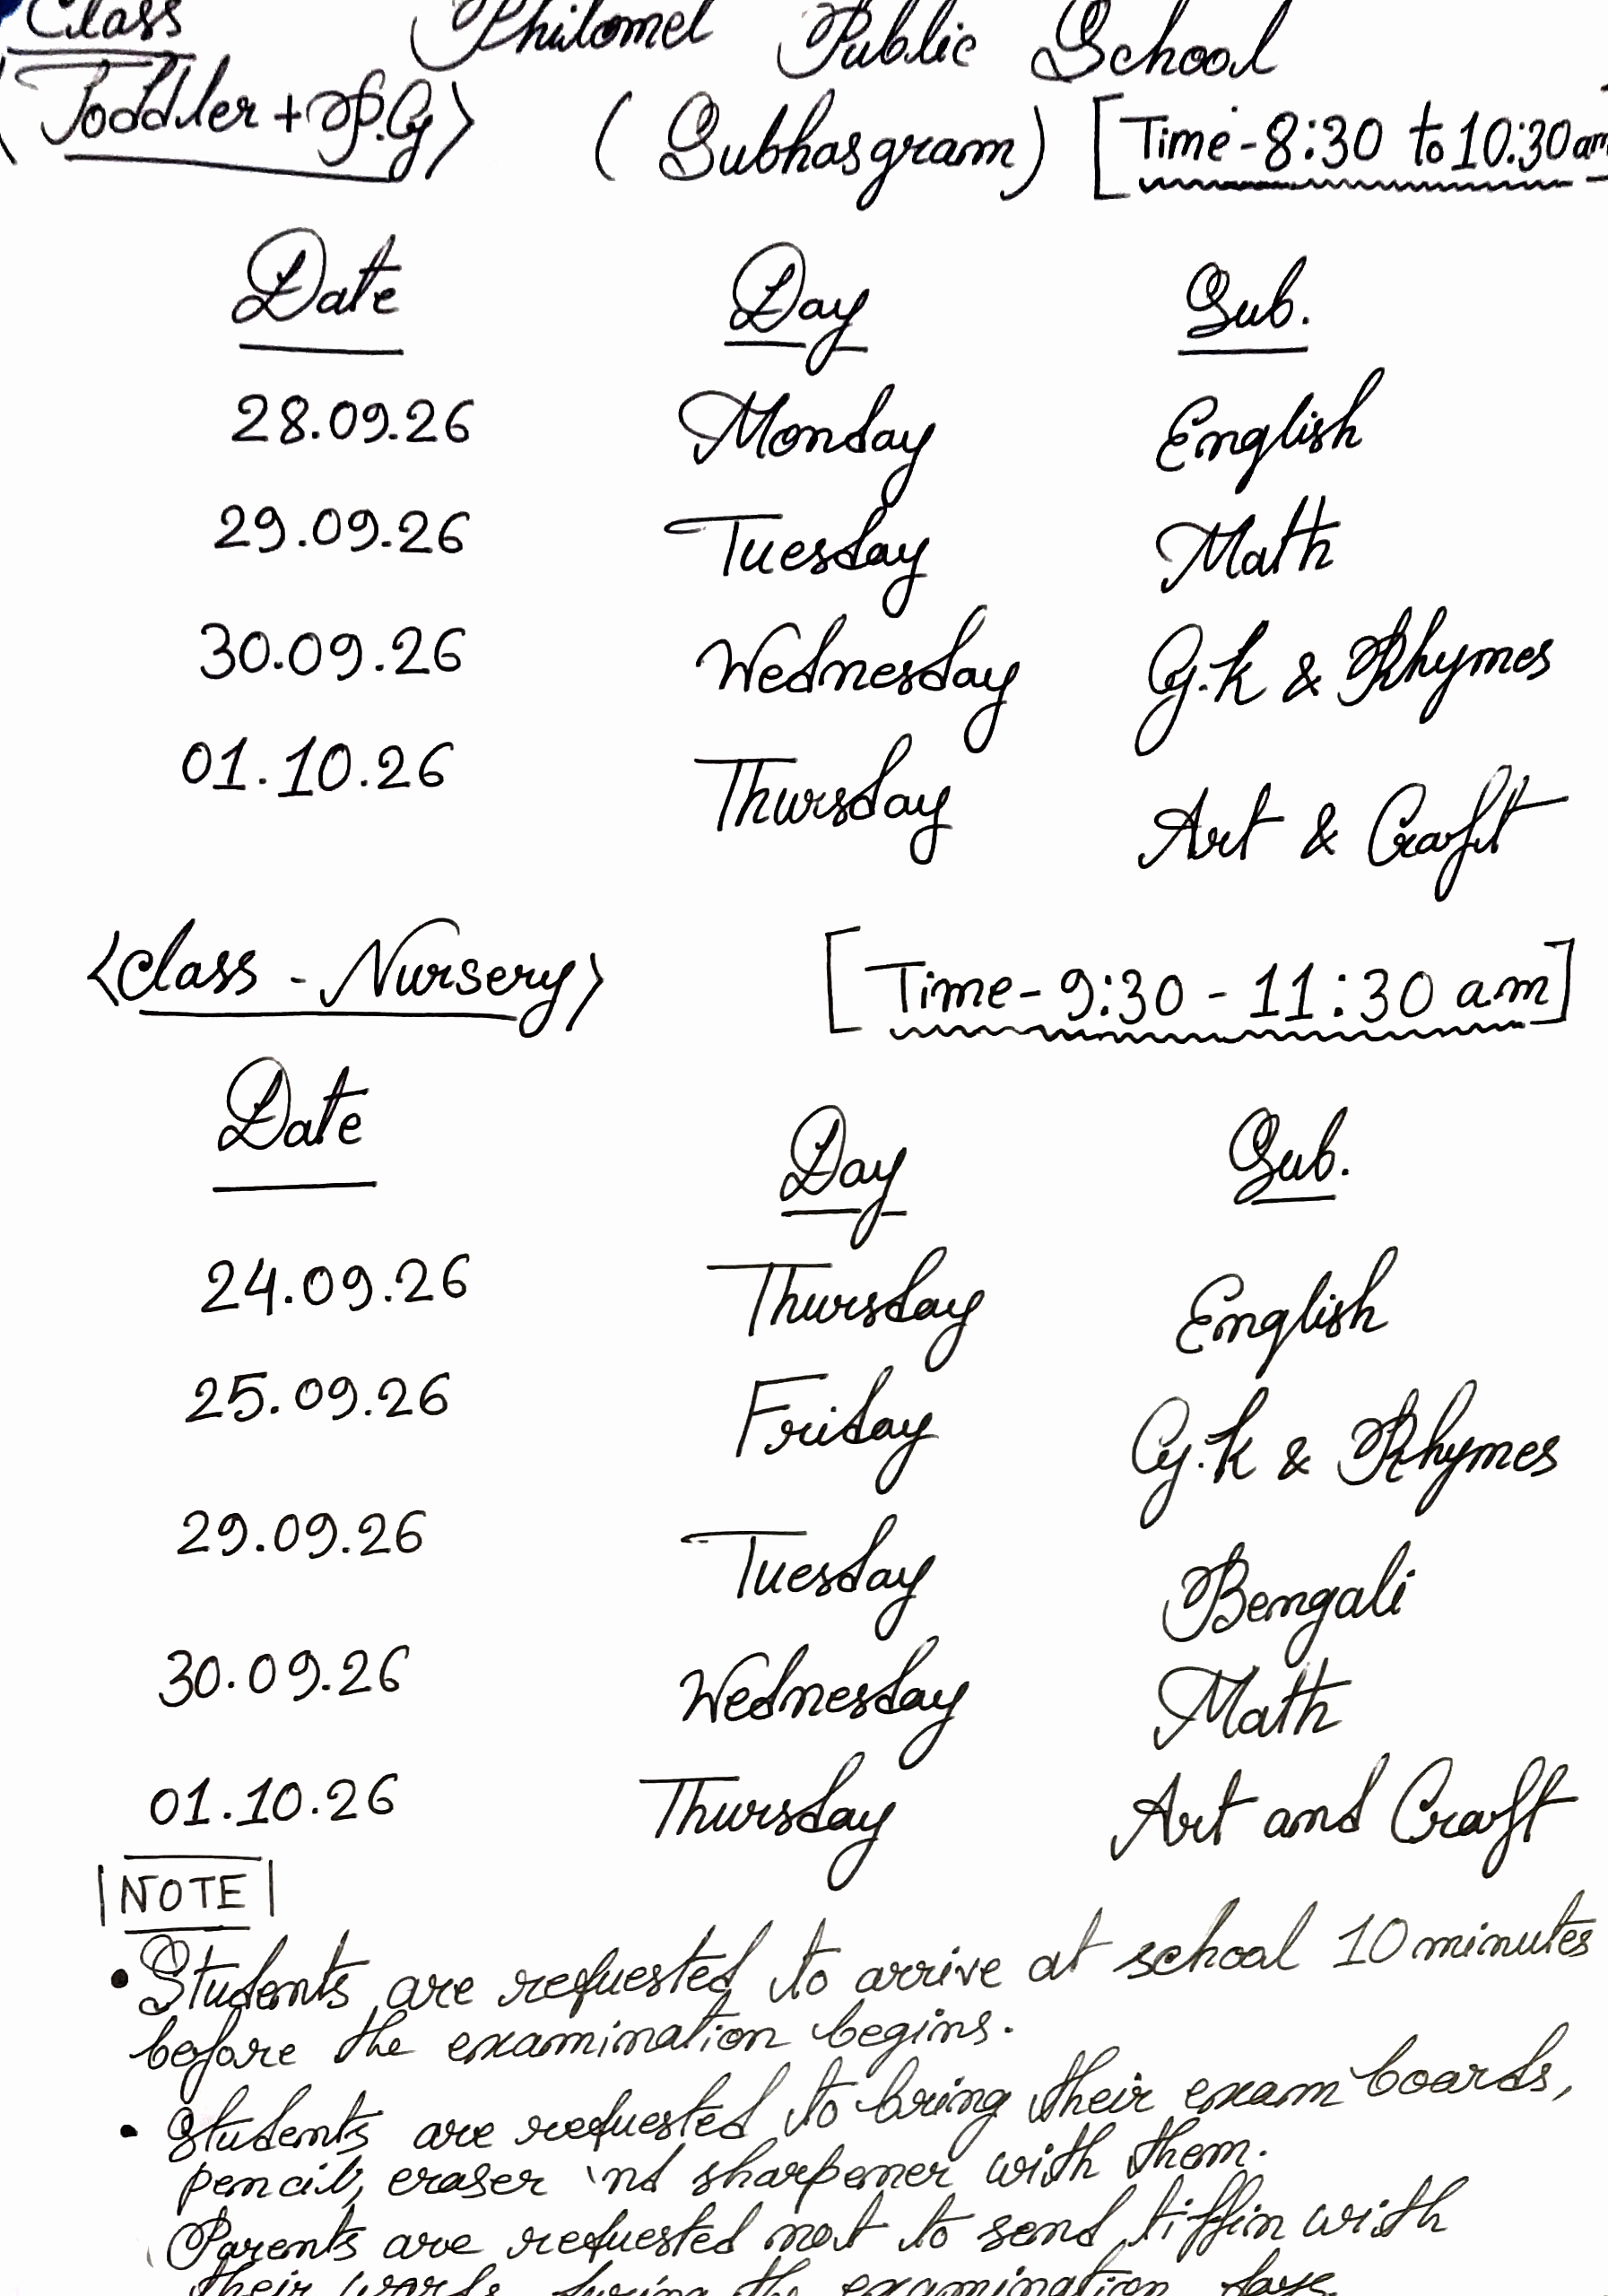 Class Philomel Public School
Toddler + P.G〉 (Subhasgram) [Time - 8:30 to 10:30 am
Date Day Sub.
28.09.26 Monday English
29.09.26 Tuesday Math
30.09.26 Wednesday G.K & Rhymes
01.10.26 Thursday Art & Craft
〈Class - Nursery〉 [Time - 9:30 - 11:30 am]
Date Day Sub.
24.09.26 Thursday English
25.09.26 Friday G.K & Rhymes
29.09.26 Tuesday Bengali
30.09.26 Wednesday Math
01.10.26 Thursday Art and Craft
|NOTE|
• Students are requested to arrive at school 10 minutes
before the examination begins.
• Students are requested to bring their exam boards,
pencil, eraser 'nd sharpener with them.
Parents are requested not to send tiffin with
their wards during the examination days.